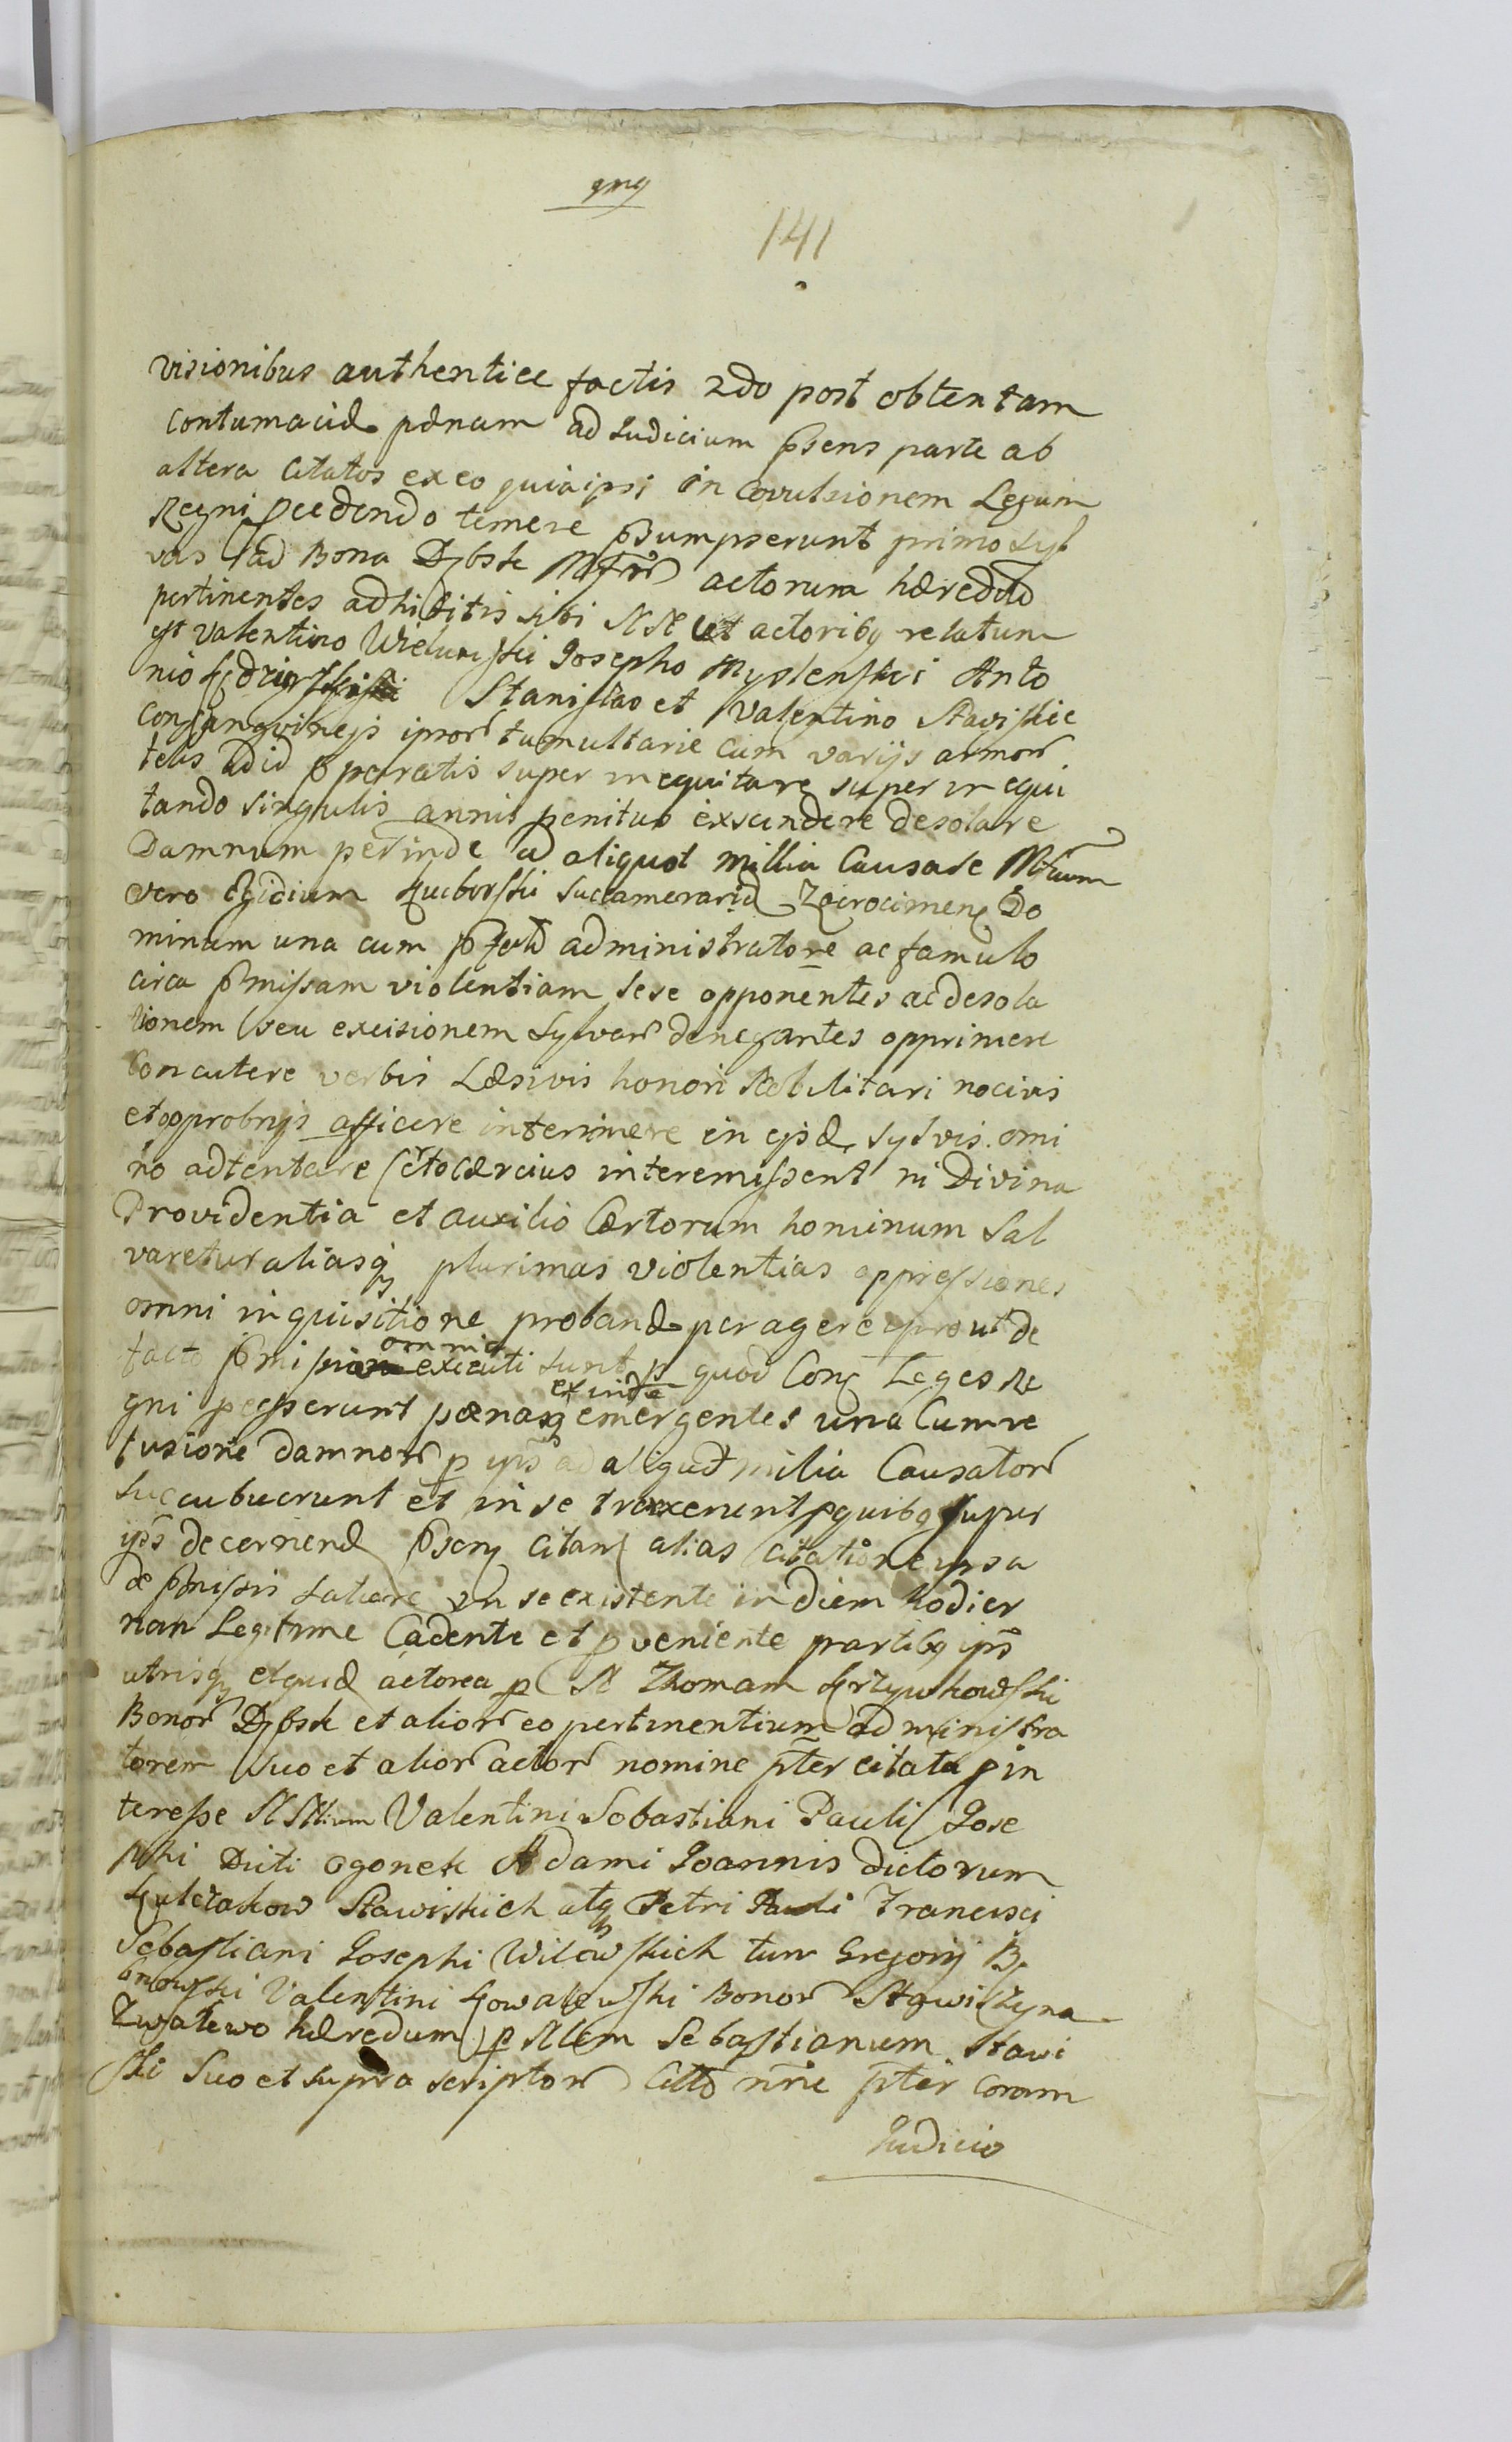 141
visionibus authentice factis 2do post obtentam
Contumaciæ pænam ad Judicium psens parte ab
altera Citatos ex eo quia ipsi in Convulsionem Legum
Regni pccedendo temere psumpserunt primo Syl
vas ad Bona Dybsk Mfcor actorum hæredit
pertinentes adhibitis sibi NN ut actoribq relatum
est Valentino Josepho Myslenski Anto
nio Stanislao et Valentino Stawiskie
Consangvineis ipsor tumultarie cum varijs armor
telis ad id pparatis super inequitare super in equi
tando singulis annis penitus exscindere desolare
Damnum perinde ad aliquot millia Causare
vero Egidium Kuczborski Succamerarid Zawcrimen Do
minum una cum administratore ac famulo
circa pmissam violentiam sese opponentes ac desola
tionem seu excisionem Sylvar denegantes opprimere
Concutere verbis Læsivis honori Nobilitari nocivis
et opprobrijs afficere interimere in ejsd Sylvis omi
no adtentare interemissent ni Divina
Providentia et auxilio Cærtorum hominum Sal
varetur aliasq plurimas violentias oppressiones
omni inquisitione proband peragere prout de
facto pmissa omnia executi sunt p quod Con Leges Re
gni pegserunt pænasq exinde emergentes una Cum re
fusione damnor p ips ad aliquot milia Causator
Succubuerunt et in se traxerunt p quibq super
ips decernend psens Citan alias Citatione ipsa
de pmissis Latiore in se existente in diem hodier
nam Legitime Cadente et pveniente partibq ips
utrisq et quid actorea p N Thomam Krzywkowski
Bonor Dybsk et alior eo pertinentium administra
torem suo et alior actor nomine pter citata p in
teresse NNlium Valentini Sebastiani Pauli Jose
phi Dicti Ogonek Adami Joannis dictorum
Kulczakow Stawiskich atq Petri Pauli Francisci
Sebastiani Josephi Witowskich tum Gregorij By
bnowski Valentini Kowalewski Bonor Stawiszyna
Zwalewo hæredum p Nlem Sebastianum Stawi
ski Suo et supra scriptor Citto nne pter Coram
Judicio